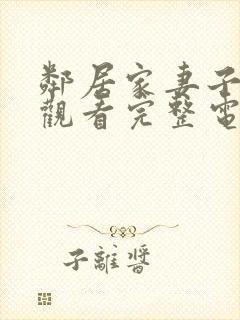 鄰居家妻子
觀看完整電
子離醬